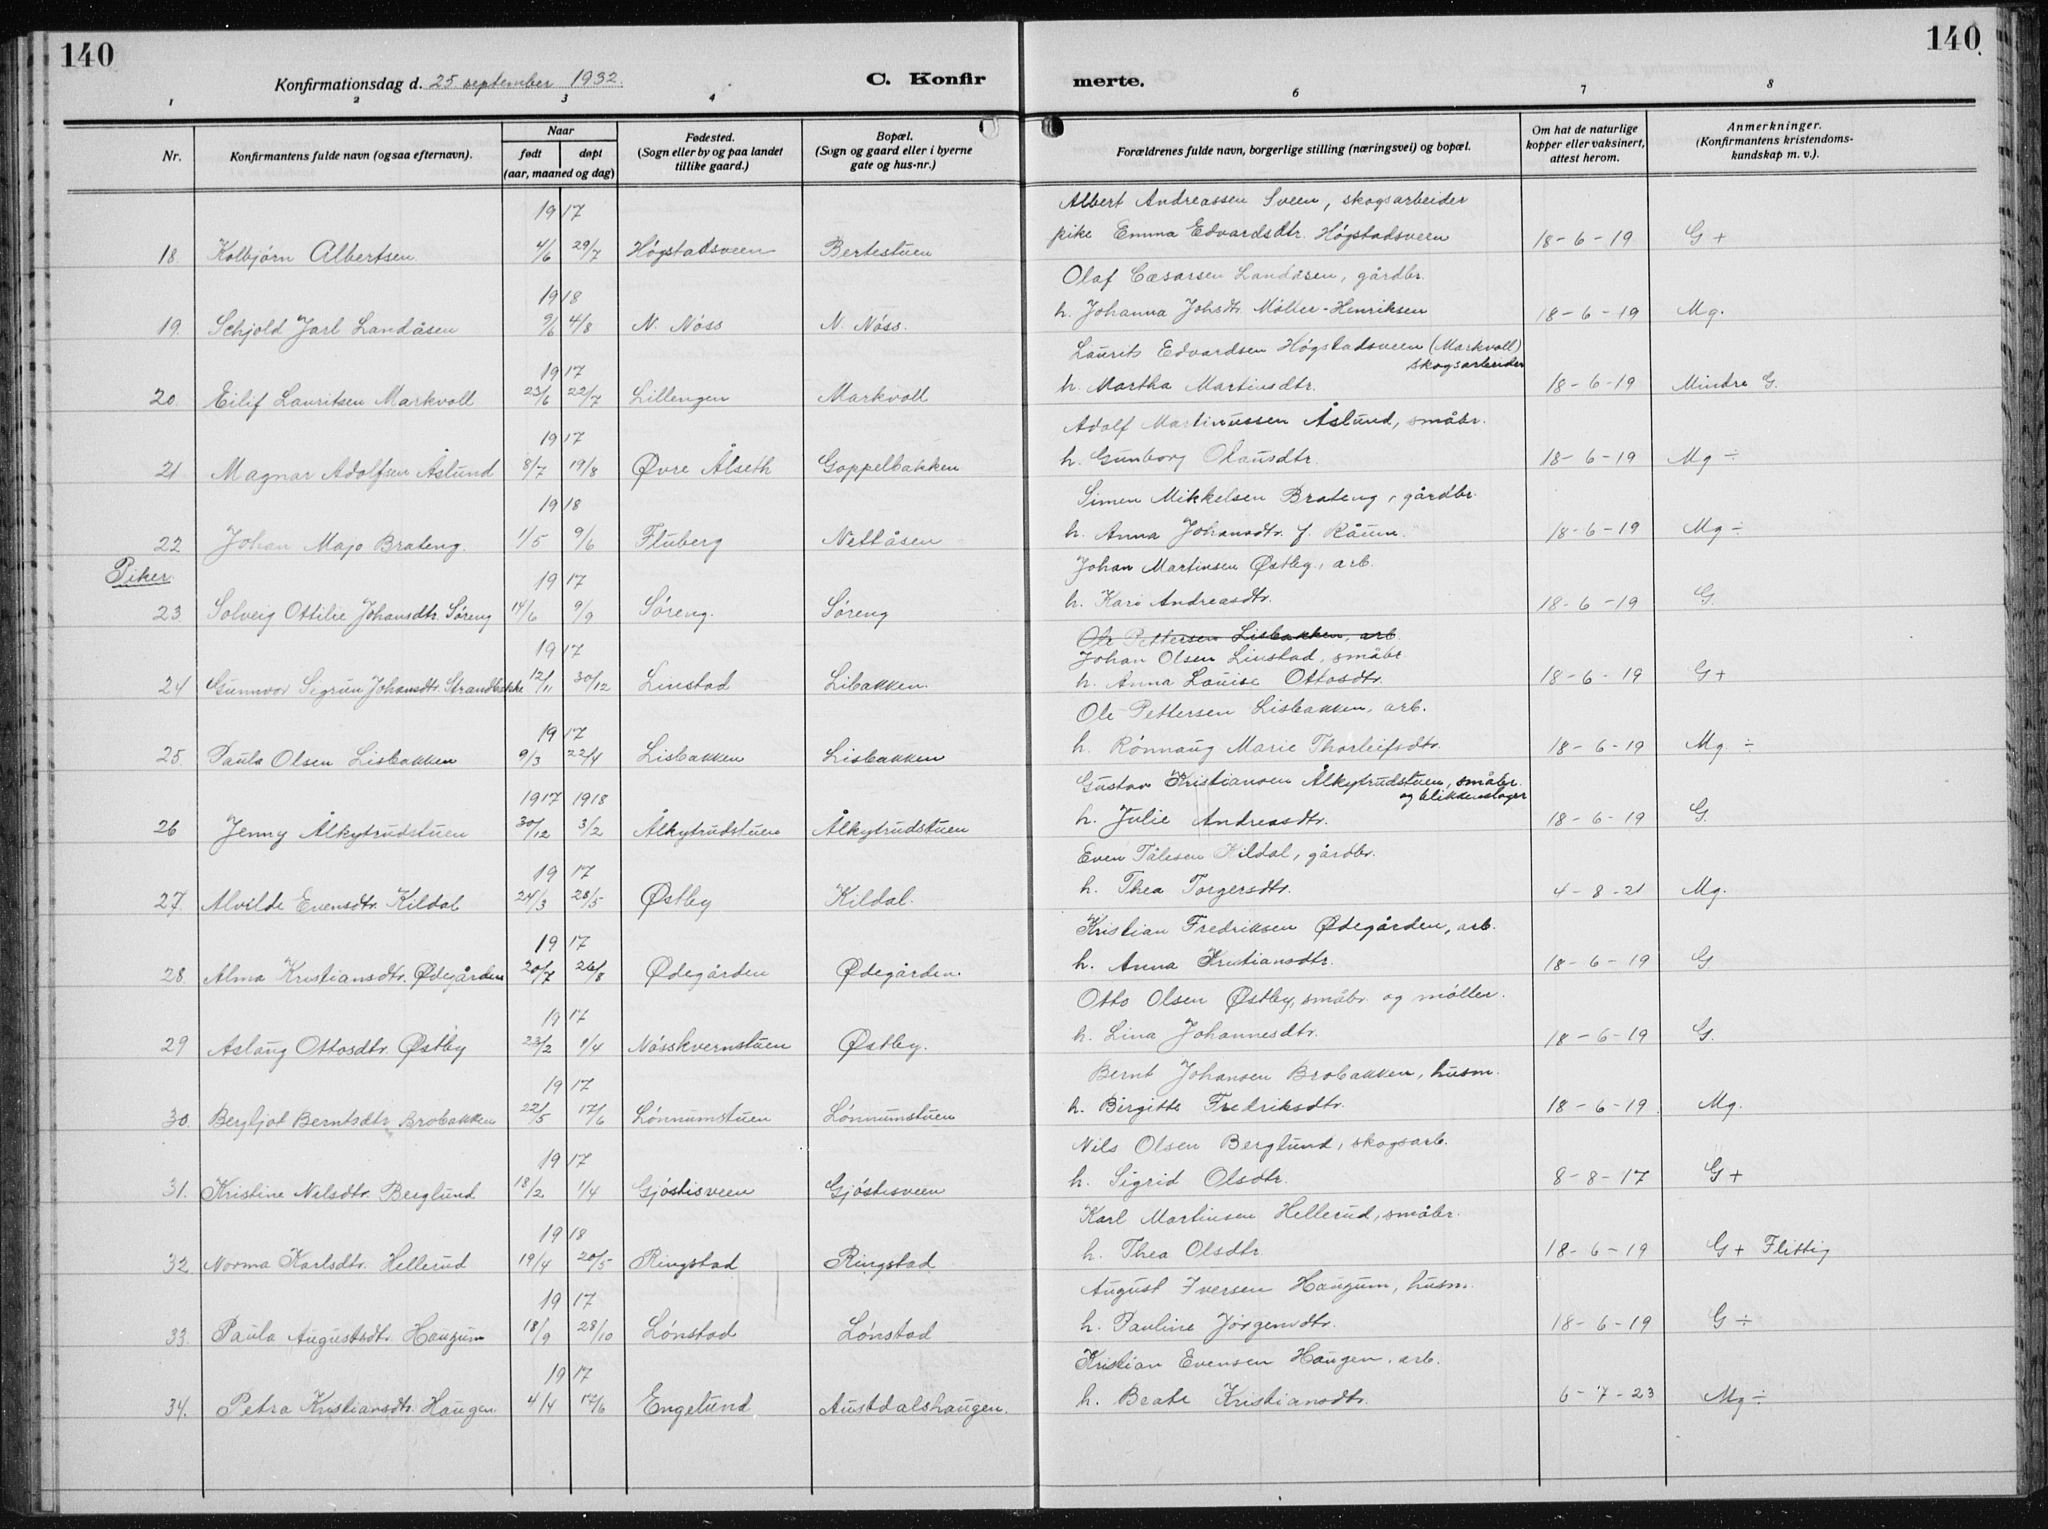 140
140
Konfirmationsdag d. 25 september 1932.
C. Konfirmerte.
1 2 3 4 6 7 8
Nr.
Konfirmantens fulde navn (ogsaa efternavn).
Naar
født
døpt
(aar, maaned og dag)
Fødested.
(Sogn eller by og paa landet
tillike gaard.)
Bopæl.
(Sogn og gaard eller i byerne
gate og hus-nr.)
Forældrenes fulde navn, borgerlige stilling (næringsvei) og bopæl.
Om hat de naturlige
kopper eller vaksinert,
attest herom.
Anmerkninger.
(Konfirmantens kristendoms-
kundskap m. v.).
1917 Albert Andreassen Sveen, skogsarbeider
18. Kolbjørn Albertsen 4/6 29/7 Høgstadsveen Bertestuen pike Emma Edvardsdtr. Høgstadsveen 18-6-19 G +
1918 Olaf Cæsarsen Landåsen, gårdbr.
19. Schjold Jarl Landåsen 9/6 4/8 N. Nøss N. Nøss. h. Johanna Johsdtr. Møller-Henriksen 18-6-19 Mg.
1917 Laurits Edvardsen Høgstadsveen (Markvoll)
skogsarbeider
20. Eilif Lauritsen Markvoll 23/6 22/7 Lillengen Markvoll h. Martha Martinsdtr. 18-6-19 Mindre G.
1917 Adolf Martinussen Åslund, småbr.
21 Magnar Adolfsen Åslund 8/7 19/8 Øvre Ålseth Goppelbakken h. Gunborg Olausdtr. 18-6-19 Mg ÷
1918 Simen Mikkelsen Brateng, gårdbr.
22 Johan Majo Brateng. 1/5 9/6 Fluberg Nettåsen h. Anna Johansdtr. f. Råum. 18-6-19 Mg ÷
Piker
1917 Johan Martinsen Østby, arb.
23. Solveig Ottilie Johansdtr. Søreng 14/6 9/9 Søreng. Søreng h. Kari Andreasdtr. 18-6-19 G.
Ole Pettersen Lisbakken, arb.
1917 Johan Olsen Linstad, småbr.
24 Gunnvor Sigrun Johansdtr. Strandbakke 12/11 30/12 Linstad Libakken. h. Anna Louise Ottosdtr. 18-6-19 G +
1917 Ole Pettersen Lisbakken, arb.
25. Paula Olsen Lisbakken 9/3 22/4 Lisbakken Lisbakken h. Rønnaug Marie Thorleifsdtr. 18-6-19 Mg ÷
1917 1918 Gustav Kristiansen Ålkytrudstuen, småbr.
og blikkenslager
26 Jenny Ålkytrudstuen 30/12 3/2 Ålkytrudstuen Ålkytrudstuen h. Julie Andreasdtr. 18-6-19 G.
1917 Even Pålesen Kildal, gårdbr.
27. Alvilde Evensdtr. Kildal 24/3 28/5 Østby Kildal. h. Thea Torgersdtr. 4-8-21 Mg.
1917 Kristian Fredriksen Ødegården, arb.
28. Alma Kristiansdtr. Ødegården 20/7 26/8 Ødegården Ødegården. h. Anna Kristiansdtr. 18-6-19 G
1917 Otto Olsen Østby, småbr. og møller.
29 Aslaug Ottosdtr. Østby 23/2 1/4 Nøsskvernstuen Østby. h. Lina Johannesdtr. 18-6-19 G.
1917 Bernt Johansen Brobakken, husm.
30. Bergljot Berntsdtr. Brobakken 22/5 17/6 Lønnumstuen Lønnumstuen h. Birgitte Fredriksdtr. 18-6-19. Mg.
1917 Nils Olsen Berglund, skogsarb.
31. Kristine Nilsdtr. Berglund 18/2 1/4 Gjøstisveen Gjøstisveen h. Sigrid Olsdtr. 8-8-17 G +
1918 Karl Martinsen Hellerud, småbr.
32 Norma Karlsdtr. Hellerud 19/4 20/5 Ringstad Ringstad h. Thea Olsdtr. 18-6-19 G + Flittig
1917 August Iversen Haugum, husm.
33. Paula Augustsdtr. Haugum 18/9 28/10 Lønstad Lønstad h. Pauline Jørgensdtr. 18-6-19 G ÷
1917 Kristian Evensen Haugen. arb.
34. Petra Kristiansdtr. Haugen. 4/4 17/6 Engelund Austdalshaugen. h. Beate Kristiansdtr. 6-7-23 Mg ÷